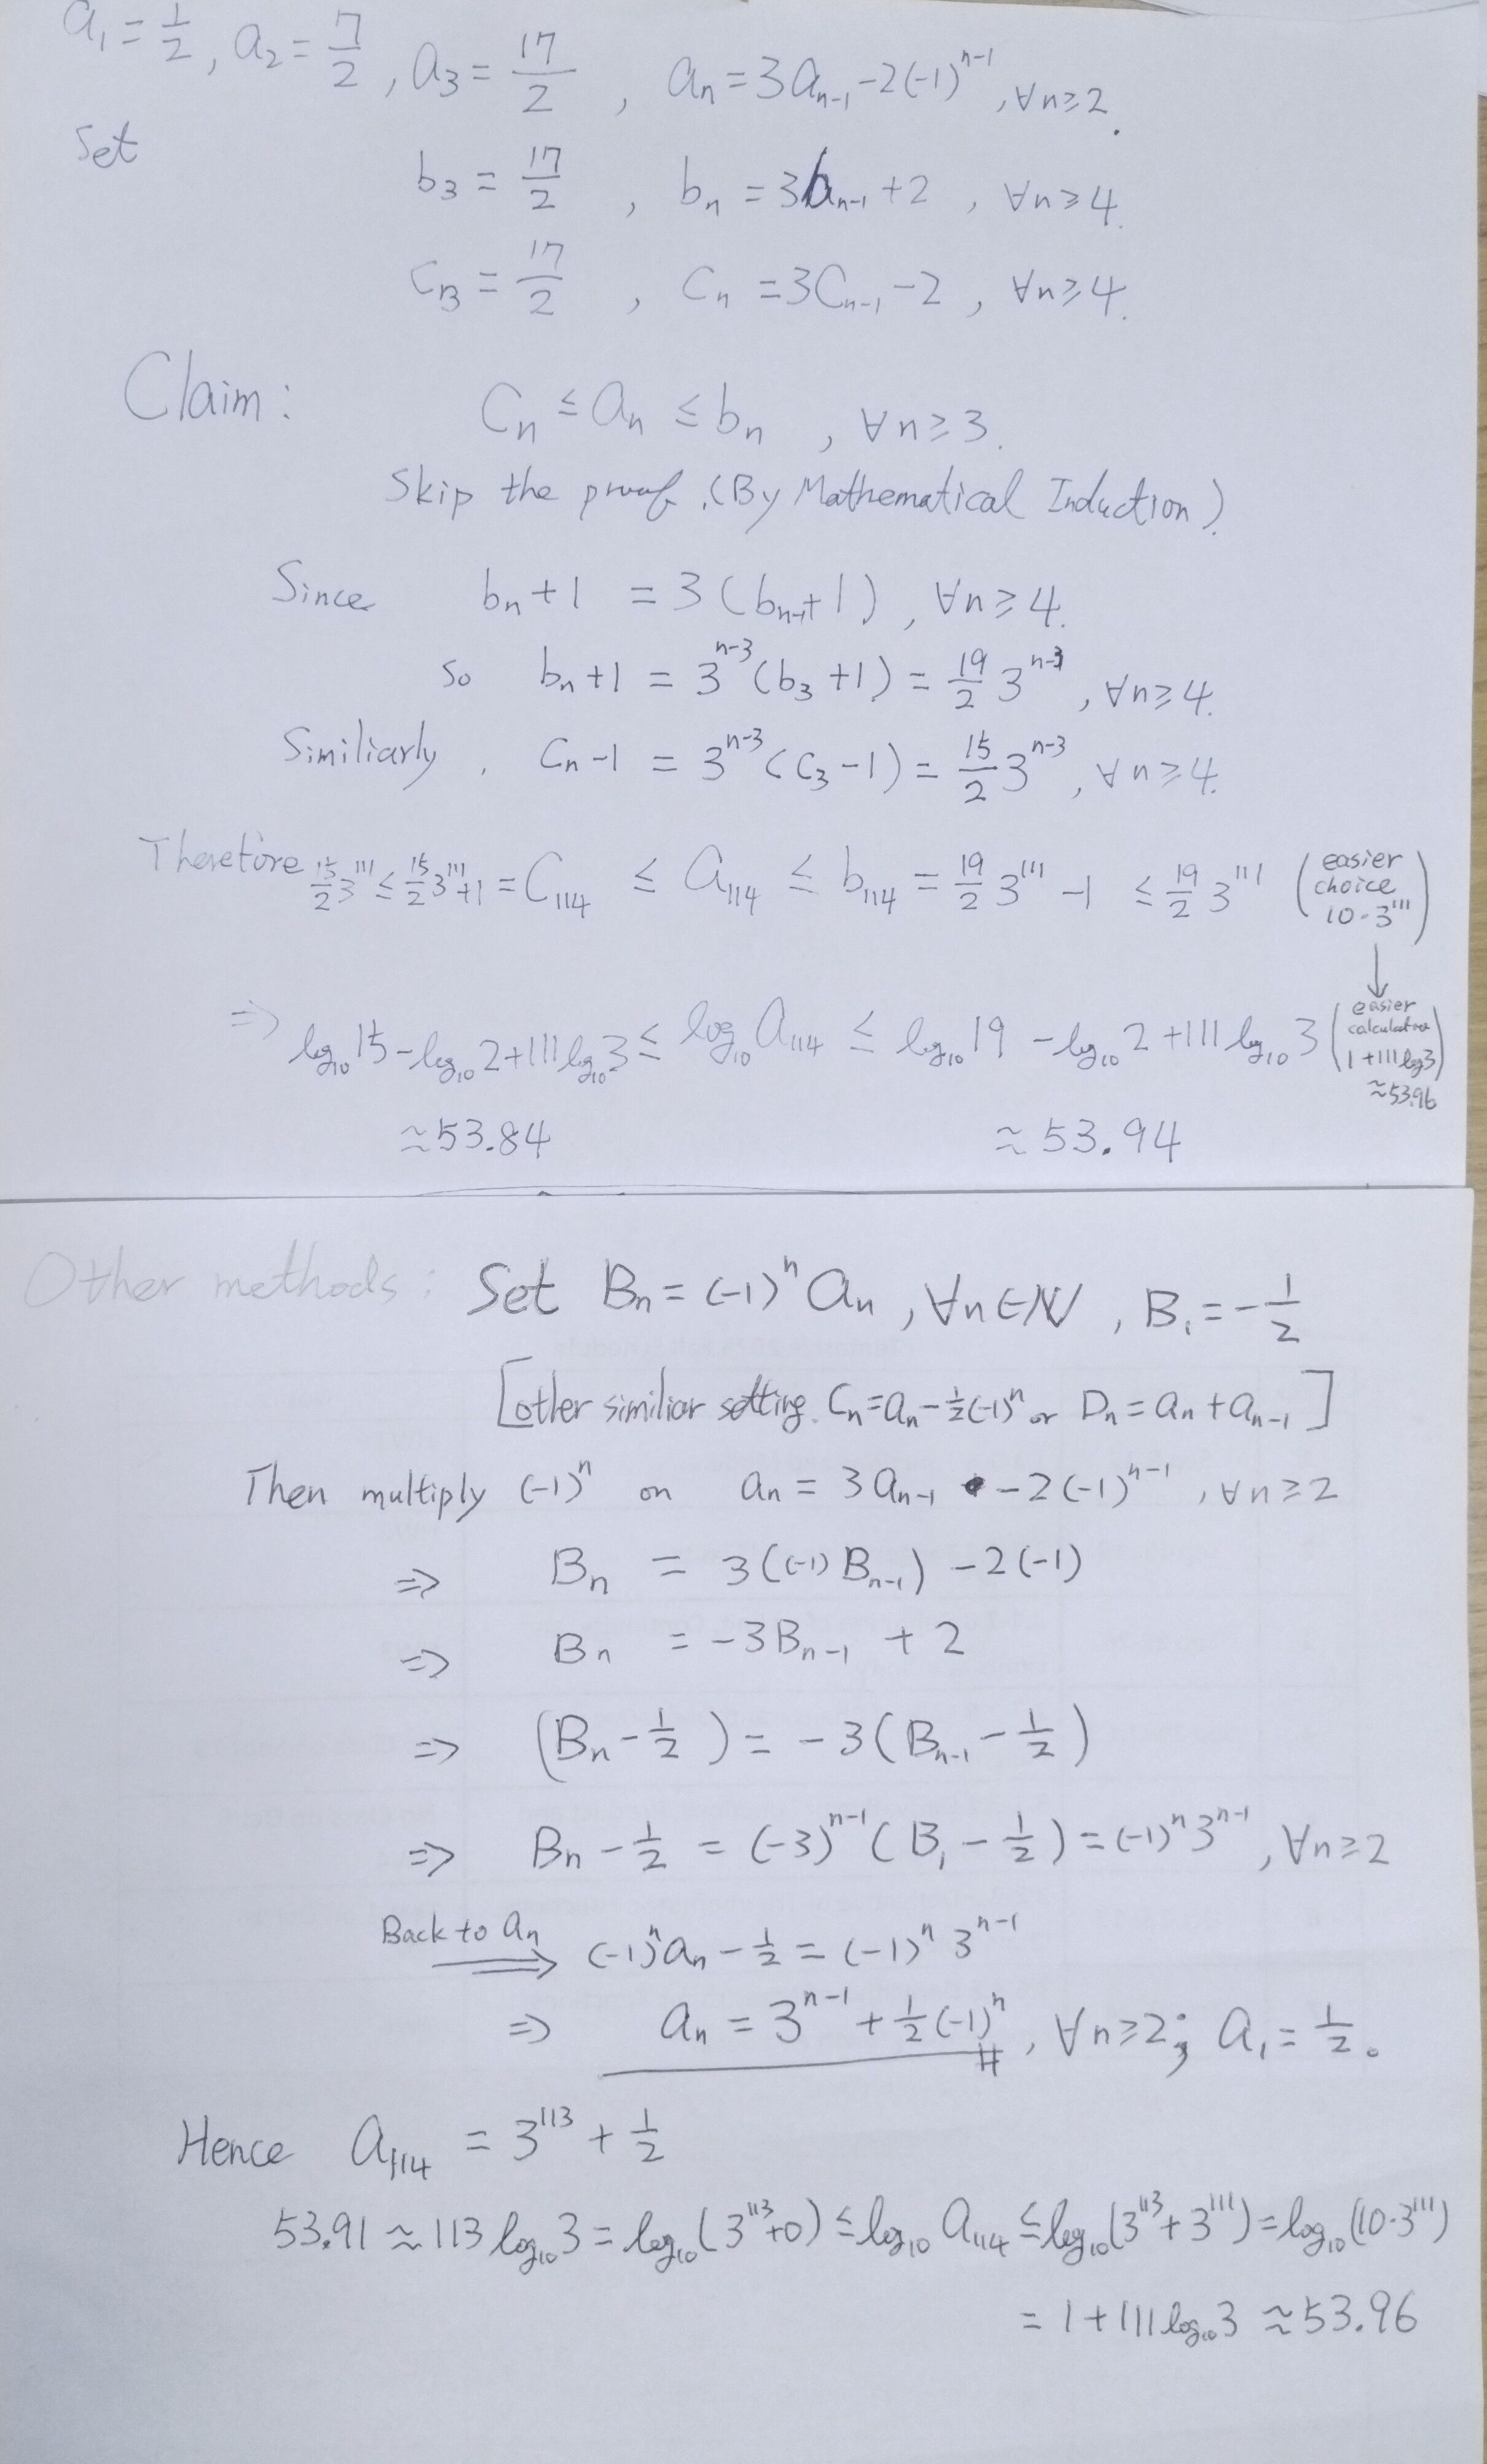 a₁ = 1/2, a₂ = 7/2, a₃ = 17/2, aₙ = 3aₙ₋₁ - 2(-1)ⁿ⁻¹, ∀n≥2.
Set
b₃ = 17/2, bₙ = 3bₙ₋₁ + 2, ∀n≥4.
C₃ = 17/2, Cₙ = 3Cₙ₋₁ - 2, ∀n≥4.
Claim: Cₙ ≤ aₙ ≤ bₙ, ∀n≥3.
Skip the proof. (By Mathematical Induction).
Since bₙ+1 = 3(bₙ₋₁+1), ∀n≥4.
So bₙ+1 = 3ⁿ⁻³(b₃+1) = 19/2 3ⁿ⁻³, ∀n≥4.
Similiarly, Cₙ-1 = 3ⁿ⁻³(C₃-1) = 15/2 3ⁿ⁻³, ∀n≥4.
Therefore 15/2 3¹¹¹ ≤ 15/2 3¹¹¹+1 = C₁₁₄ ≤ a₁₁₄ ≤ b₁₁₄ = 19/2 3¹¹¹ - 1 ≤ 19/2 3¹¹¹ (easier choice 10·3¹¹¹)
↓
⇒ log₁₀15 - log₁₀2 + 111log₁₀3 ≤ log₁₀a₁₁₄ ≤ log₁₀19 - log₁₀2 + 111log₁₀3 (easier calculation 1+111log3)
≈53.96
≈53.84 ≈53.94
Other methods: Set Bₙ = (-1)ⁿaₙ, ∀n∈ℕ, B₁ = -1/2
[other similiar setting. Cₙ = aₙ - 1/2(-1)ⁿ or Dₙ = aₙ + aₙ₋₁]
Then multiply (-1)ⁿ on aₙ = 3aₙ₋₁ - 2(-1)ⁿ⁻¹, ∀n≥2
⇒ Bₙ = 3((-1)Bₙ₋₁) - 2(-1)
⇒ Bₙ = -3Bₙ₋₁ + 2
⇒ (Bₙ - 1/2) = -3(Bₙ₋₁ - 1/2)
⇒ Bₙ - 1/2 = (-3)ⁿ⁻¹(B₁ - 1/2) = (-1)ⁿ3ⁿ⁻¹, ∀n≥2
Back to aₙ ⇒ (-1)ⁿaₙ - 1/2 = (-1)ⁿ3ⁿ⁻¹
⇒ aₙ = 3ⁿ⁻¹ + 1/2(-1)ⁿ #, ∀n≥2; a₁ = 1/2.
Hence a₁₁₄ = 3¹¹³ + 1/2
53.91 ≈ 113log₁₀3 = log₁₀(3¹¹³+0) ≤ log₁₀a₁₁₄ ≤ log₁₀(3¹¹³+3¹¹¹) = log₁₀(10·3¹¹¹)
= 1+111log₁₀3 ≈ 53.96